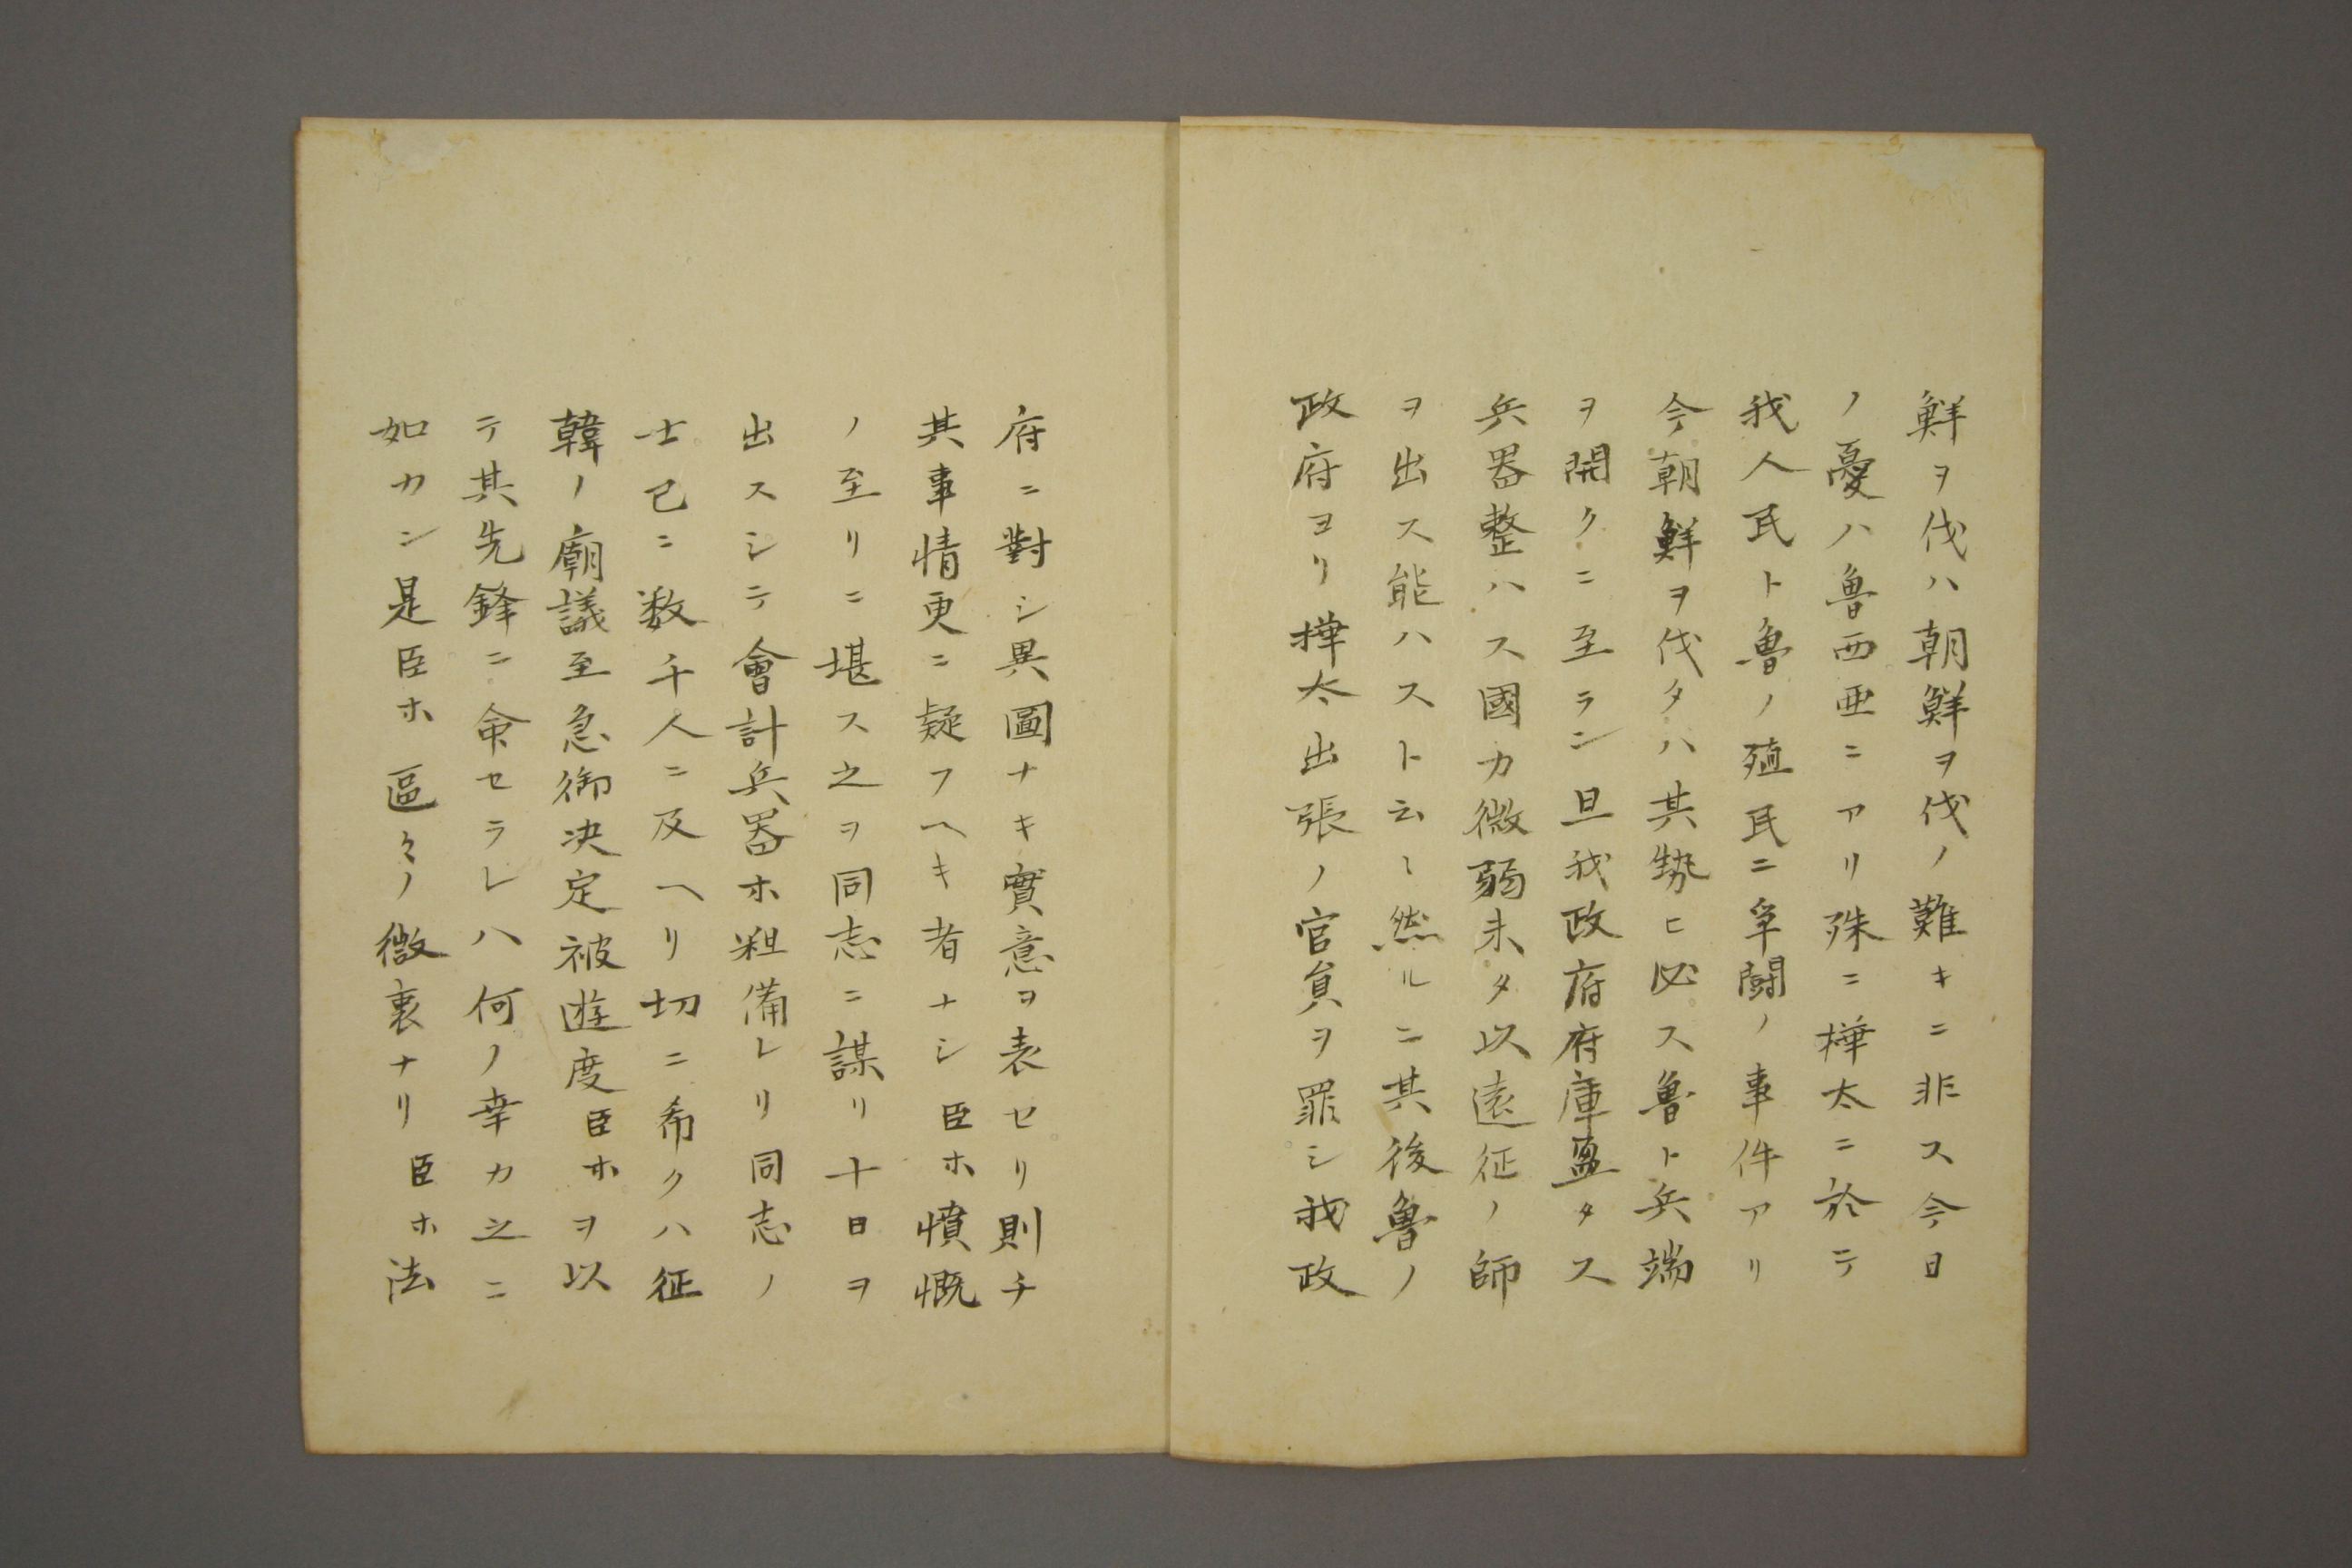 鮮ヲ伐ハ朝鮮ヲ伐ノ難キニ非ス今日
ノ憂ハ魯西亜ニアリ殊ニ樺太ニ於テ
我人民ト魯ノ殖民ニ爭闘ノ事件アリ
今朝鮮ヲ伐タハ其勢ヒ必ス魯ト兵端
ヲ開クニ至ラン且我政府府庫盈タス
兵器整ハス國力微弱未タ以遠征ノ師
ヲ出ス能ハスト云〻然ルニ其後魯ノ
政府ヨリ樺太出張ノ官員ヲ罪シ我政
府ニ對シ異圖ナキ實意ヲ表セリ則チ
其事情更ニ疑フヘキ者ナシ臣ホ憤慨
ノ至リニ堪ス之ヲ同志ニ謀リ十日ヲ
出スシテ會計兵器ホ粗備レリ同志ノ
士已ニ数千人ニ及ヘリ切ニ希クハ征
韓ノ廟議至急御决定被遊度臣ホヲ以
テ其先鋒ニ命セラレハ何ノ幸カ之ニ
如カン是臣ホ區々ノ微衷ナリ臣ホ法